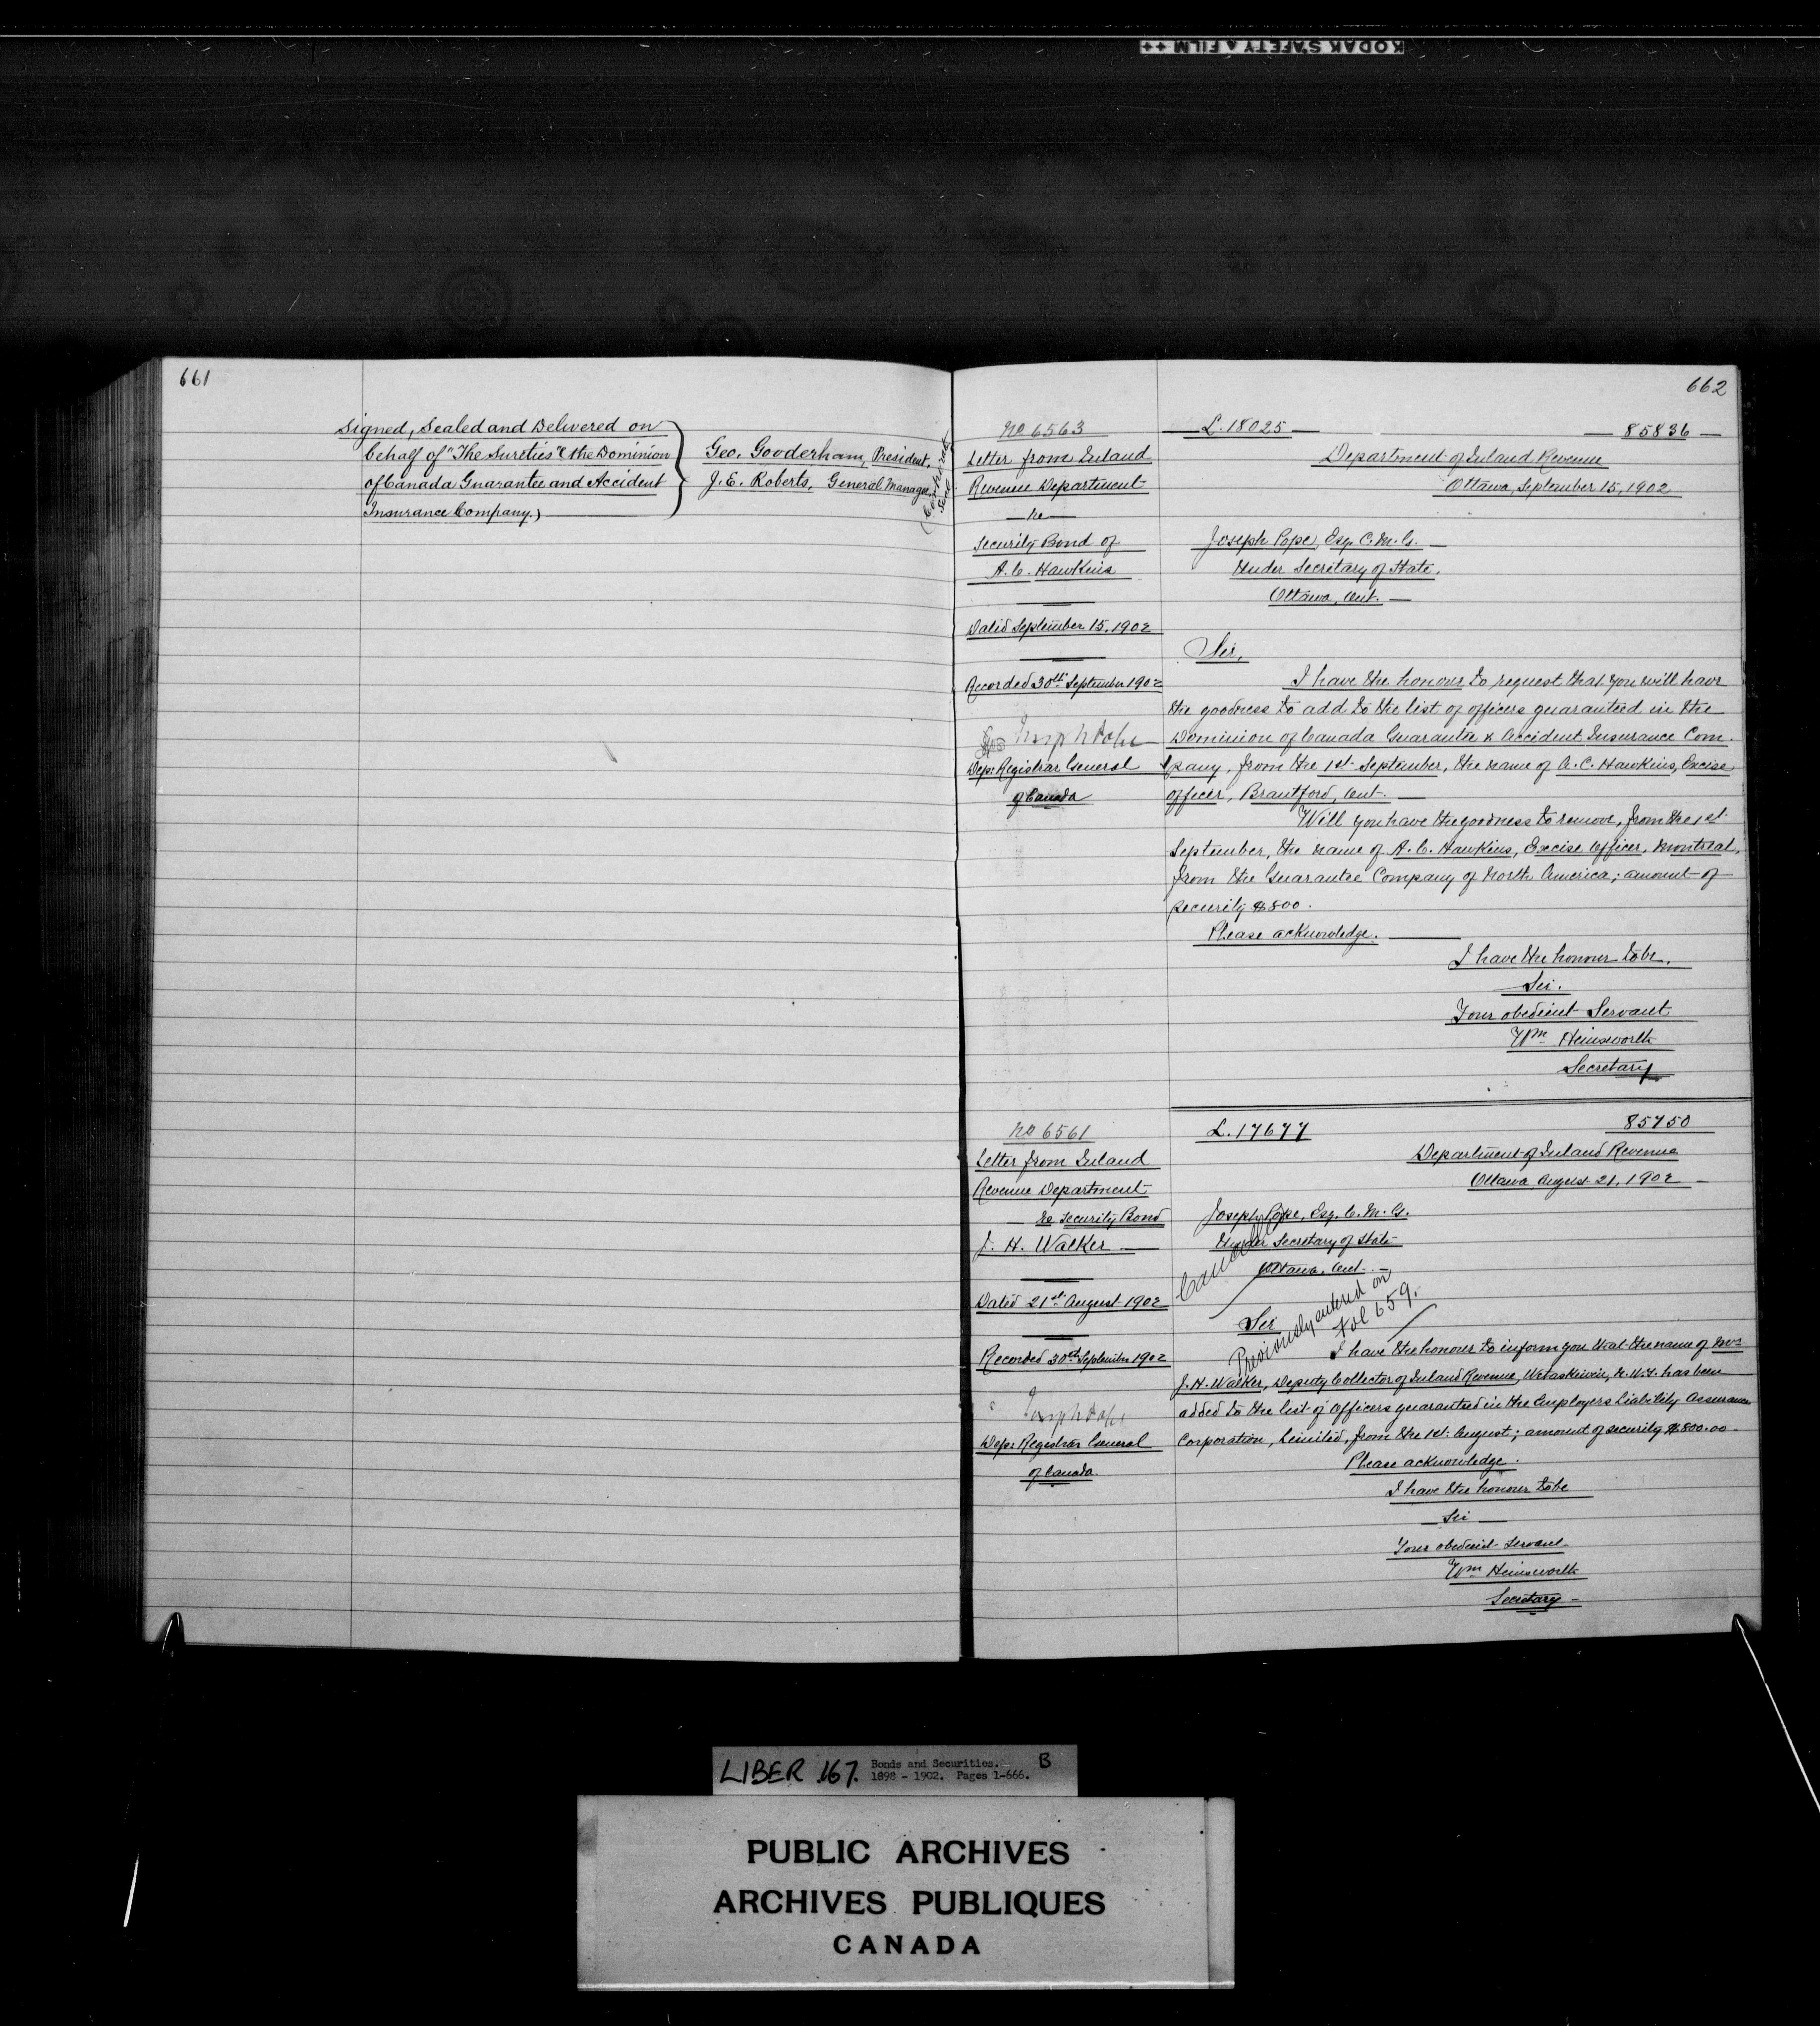 KODAK SAFETY FILM ++
661
Signed, Sealed and Delivered on
behalf of "The Sureties" (the Dominion
of Canada Guarantee and Accident
Insurance Company.)
Geo. Gooderham, President.
J. E. Roberts, General Manager.
(Corporate
Seal)
662
No 6563
Letter from Inland
Revenue Department
re
Security Bond of
A. C. Hawkins
Dated September 15, 1902
Recorded 30th September 1902
Joseph Pope
Dep: Registrar General
of Canada
L. 18025
85836
Department of Inland Revenue
Ottawa, September 15, 1902
Joseph Pope, Esq. C. M. G.
Under Secretary of State,
Ottawa, Ont.
Sir,
I have the honour to request that you will have
the goodness to add to the list of officers guaranteed in the
Dominion of Canada Guarantee & Accident Insurance Com-
pany, from the 1st September, the name of A. C. Hawkins, Excise
officer, Brantford, Ont.
Will you have the goodness to remove, from the 1st
September, the name of A. C. Hawkins, Excise Officer, Montreal,
from the Guarantee Company of North America; amount of
security $800.
Please acknowledge.
I have the honour to be,
Sir.
Your obedient Servant
Wm Heinsworth
Secretary
No 6561
Letter from Inland
Revenue Department
Re Security Bond
J. H. Walker
Dated 21st August 1902
Recorded 30th September 1902
Joseph Pope
Dep: Registrar General
of Canada.
L. 17677
85750
Department of Inland Revenue
Ottawa August 21, 1902
Joseph Pope, Esq. C. M. G.
Under Secretary of State
Ottawa, Ont.
Cancelled
Previously entered on
fol 659.
Sir
I have the honour to inform you that the name of Mr
J. H. Walker, Deputy Collector of Inland Revenue, Wetaskiwin, N. W. T. has been
added to the list of officers guaranteed in the Employers Liability Assurance
Corporation, Limited, from the 1st August; amount of security $800.00
Please acknowledge.
I have the honour to be
Sir
Your obedient Servant
Wm Heinsworth
Secretary
LIBER 167. Bonds and Securities. B
1898 - 1902. Pages 1-666.
PUBLIC ARCHIVES
ARCHIVES PUBLIQUES
CANADA